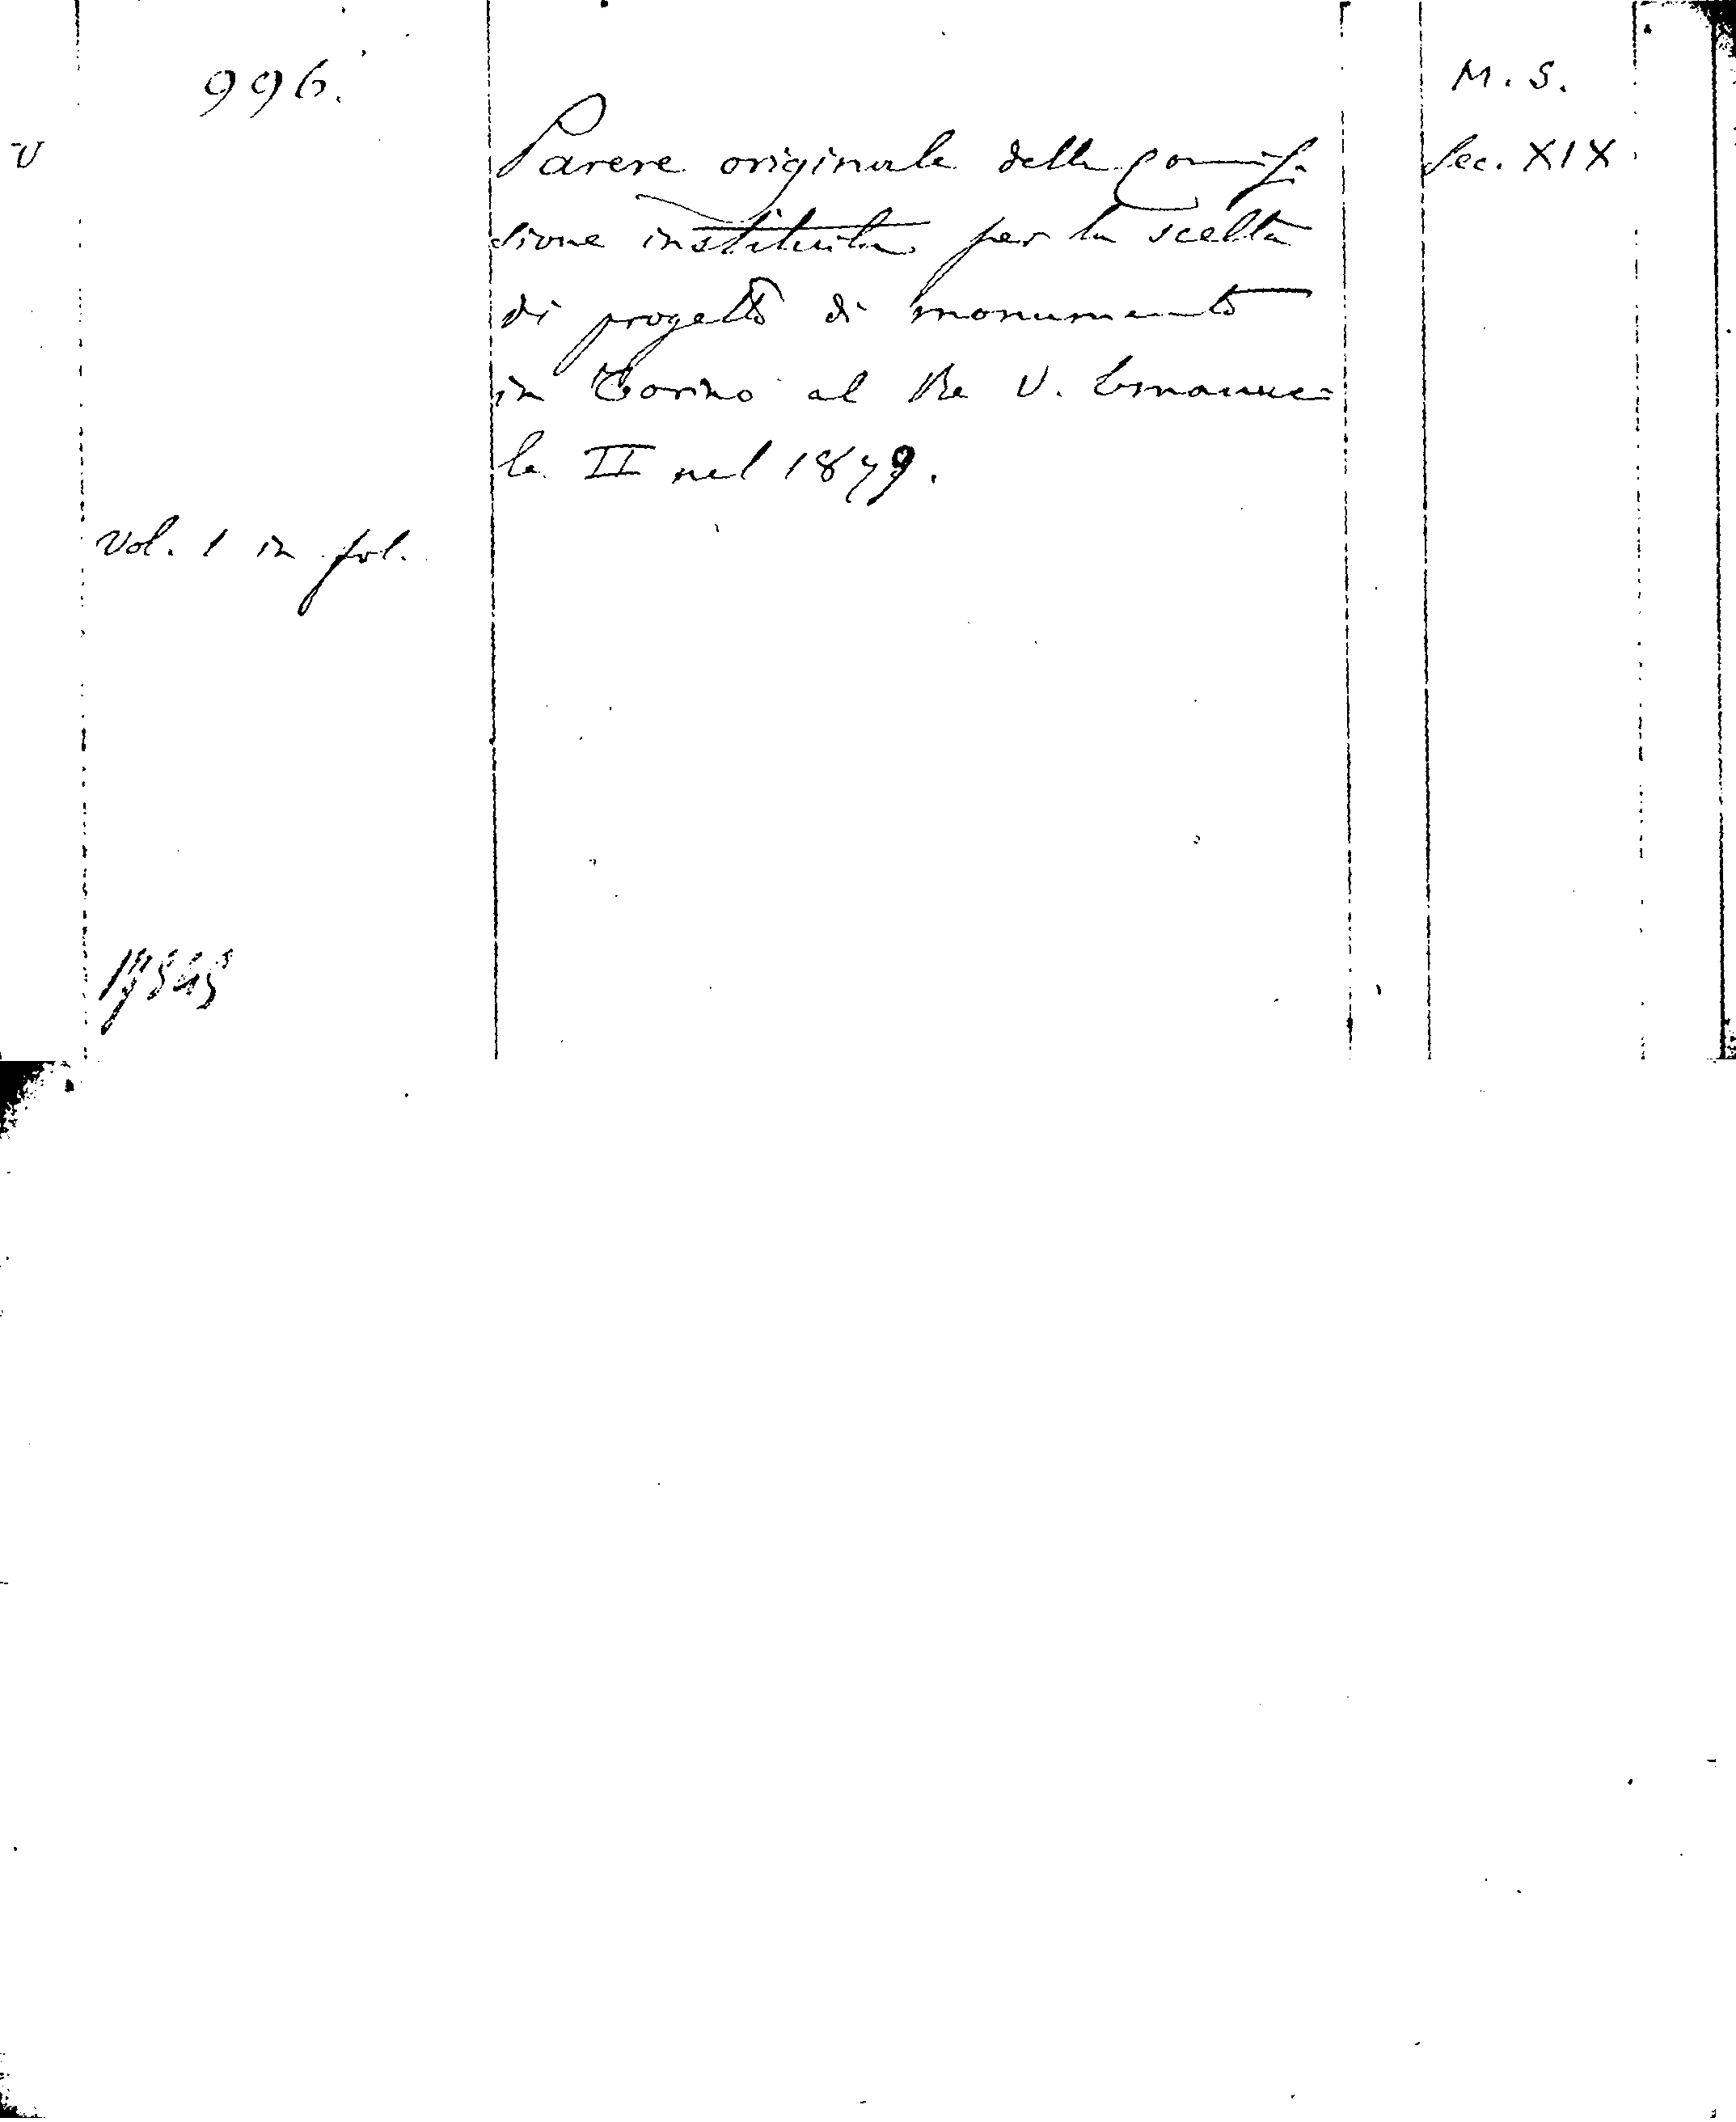 996.
M. S.
V
Parere originale della Commis-
Sec. XIX
sione instituita per la scelta
di progetto di monumento
in Torino al Re V. Emanue=
le II nel 1879.
Vol. 1 in fol.